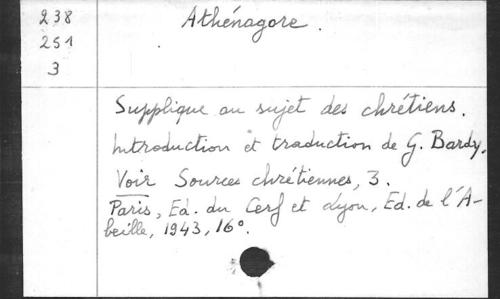 238
Athénagore.
251
3
Supplique au sujet des chrétiens.
Introduction et traduction de G. Bardy.
Voir Sources chrétiennes, 3.
Paris, Ed. du Cerf et Lyon, Ed. de l'A-
beille, 1943, 16°.